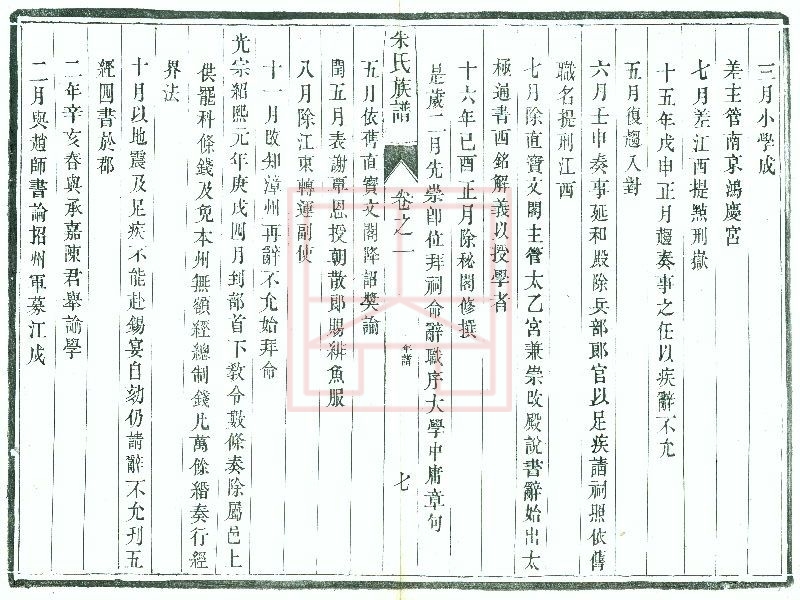 三月小學成
差主管南京鴻慶宮
七月差江西提點刑獄
十五年戊申正月趨奏事之任以疾辭不允
五月復趨入對
六月壬申奏事延和殿除兵部郎官以足疾請祠照依舊
職名提刑江西
七月除直寶文閣主管太乙宮兼崇政殿說書辭始出太
極通書西銘解義以授學者
十六年己酉正月除秘閣修撰
是歲二月光崇即位拜祠命辭職序大學中庸章句
朱氏族譜
卷之一
年譜
七
五月依舊直寶文閣降詔奬諭
閏五月表謝覃恩授朝散郎賜緋魚服
八月除江東轉運副使
十一月改知漳州再辭不允始拜命
光宗紹熙元年庚戌四月到郡首下教令數條奏除屬邑上
供罷科條錢及免本州無額經總制錢凡萬餘緡奏行經
界法
十月以地震及足疾不能赴錫宴自劾仍請辭不允刊五
經四書於郡
二年辛亥春與承嘉陳君舉諭學
二月與趙師書論招州軍募江戍